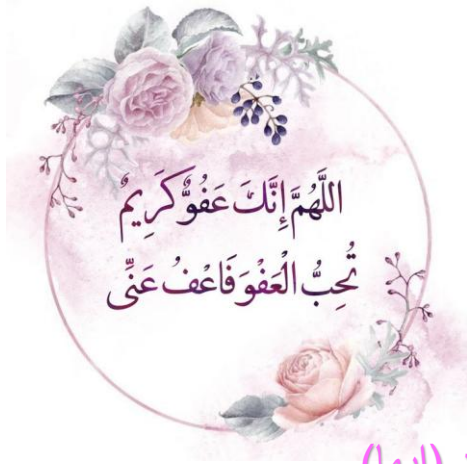 اللَّهُمَّ إِنَّكَ عَفُوٌّ كَرِيمٌ
تُحِبُّ الْعَفْوَ فَاعْفُ عَنِّي